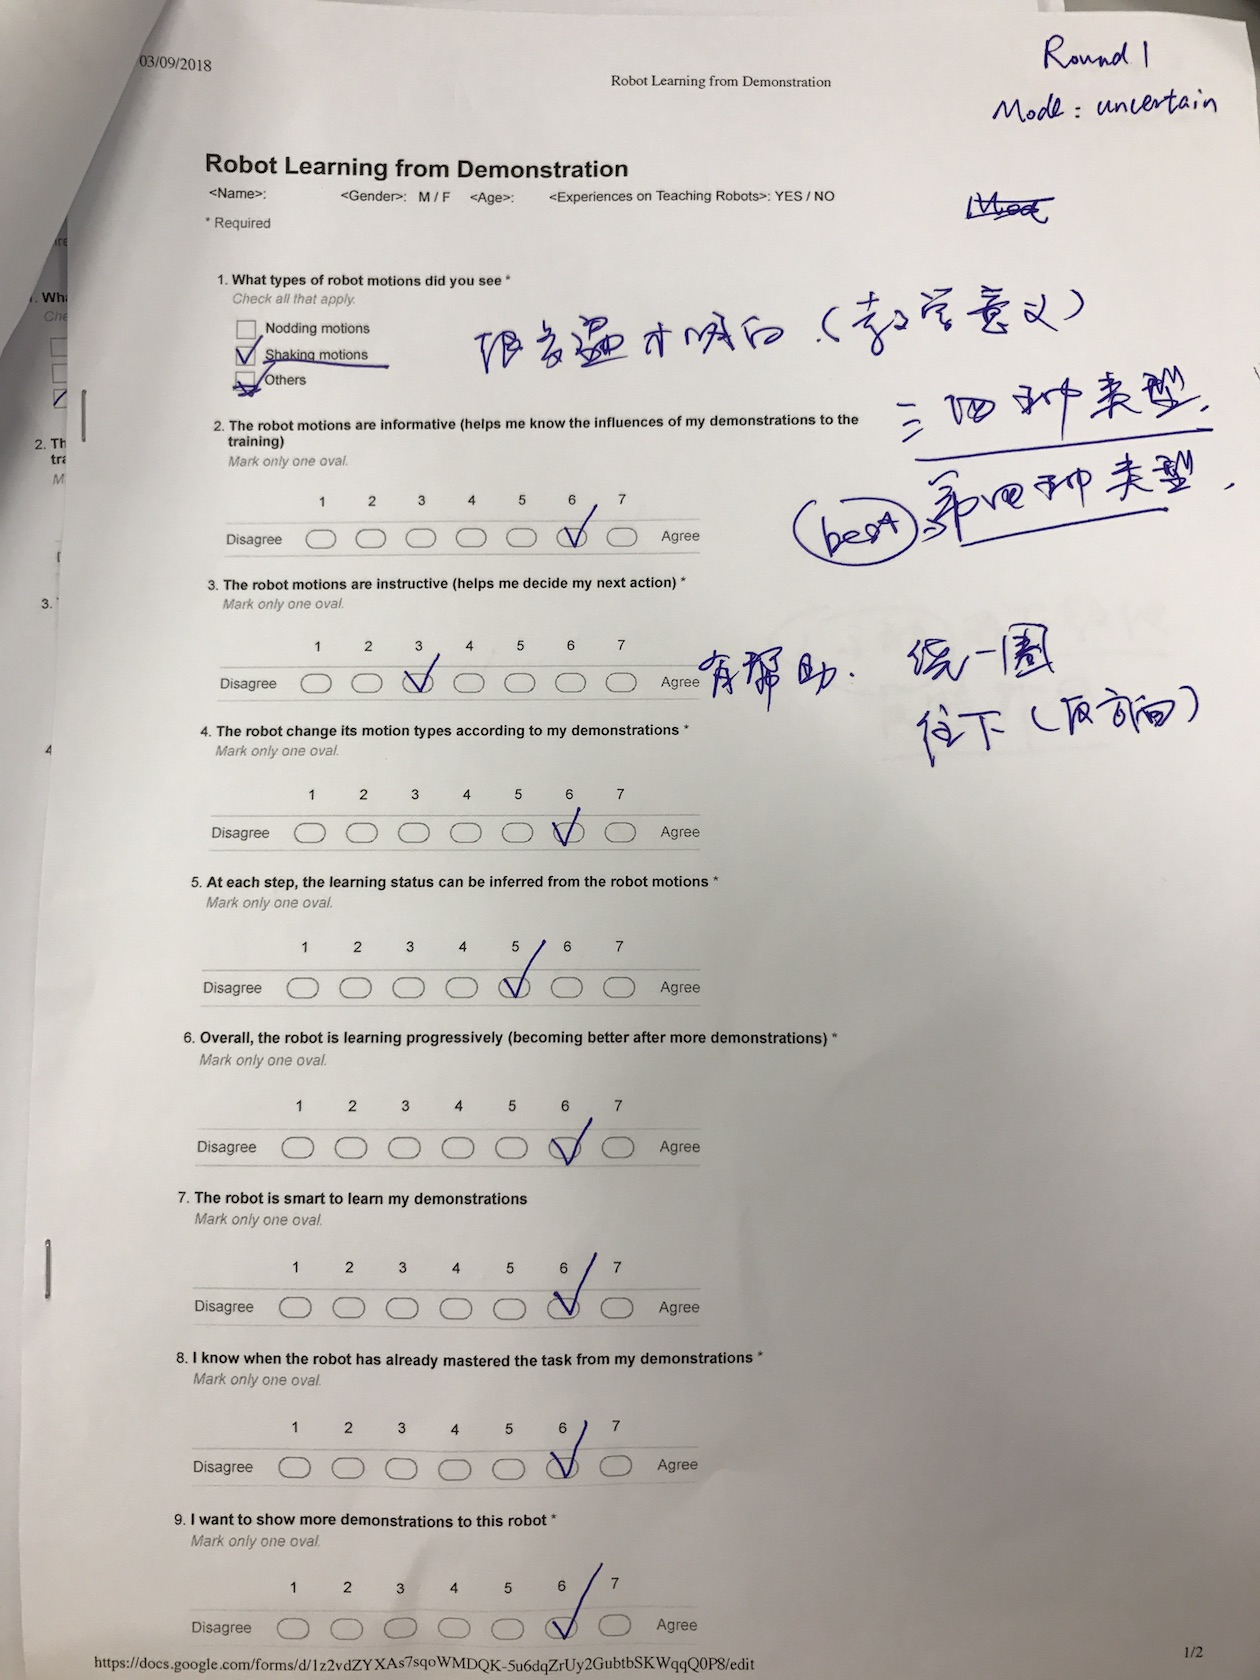 03/09/2018
Robot Learning from Demonstration
Round 1
Mode: uncertain
Robot Learning from Demonstration
<Name>: <Gender>: M / F <Age>: <Experiences on Teaching Robots>: YES / NO
* Required
1. What types of robot motions did you see *
Check all that apply.
Nodding motions
Shaking motions
Others
很多遍才明白.(教学意义)
三四种类型.
best: 第四种类型.
2. The robot motions are informative (helps me know the influences of my demonstrations to the
training)
Mark only one oval.
1 2 3 4 5 6 7
Disagree Agree
3. The robot motions are instructive (helps me decide my next action) *
Mark only one oval.
1 2 3 4 5 6 7
Disagree Agree
有帮助. 绕一圈
往下(反方向)
4. The robot change its motion types according to my demonstrations *
Mark only one oval.
1 2 3 4 5 6 7
Disagree Agree
5. At each step, the learning status can be inferred from the robot motions *
Mark only one oval.
1 2 3 4 5 6 7
Disagree Agree
6. Overall, the robot is learning progressively (becoming better after more demonstrations) *
Mark only one oval.
1 2 3 4 5 6 7
Disagree Agree
7. The robot is smart to learn my demonstrations
Mark only one oval.
1 2 3 4 5 6 7
Disagree Agree
8. I know when the robot has already mastered the task from my demonstrations *
Mark only one oval.
1 2 3 4 5 6 7
Disagree Agree
9. I want to show more demonstrations to this robot *
Mark only one oval.
1 2 3 4 5 6 7
Disagree Agree
https://docs.google.com/forms/d/1z2vdZYXAs7sqoWMDQK-5u6dqZrUy2GubtbSKWqqQ0P8/edit
1/2